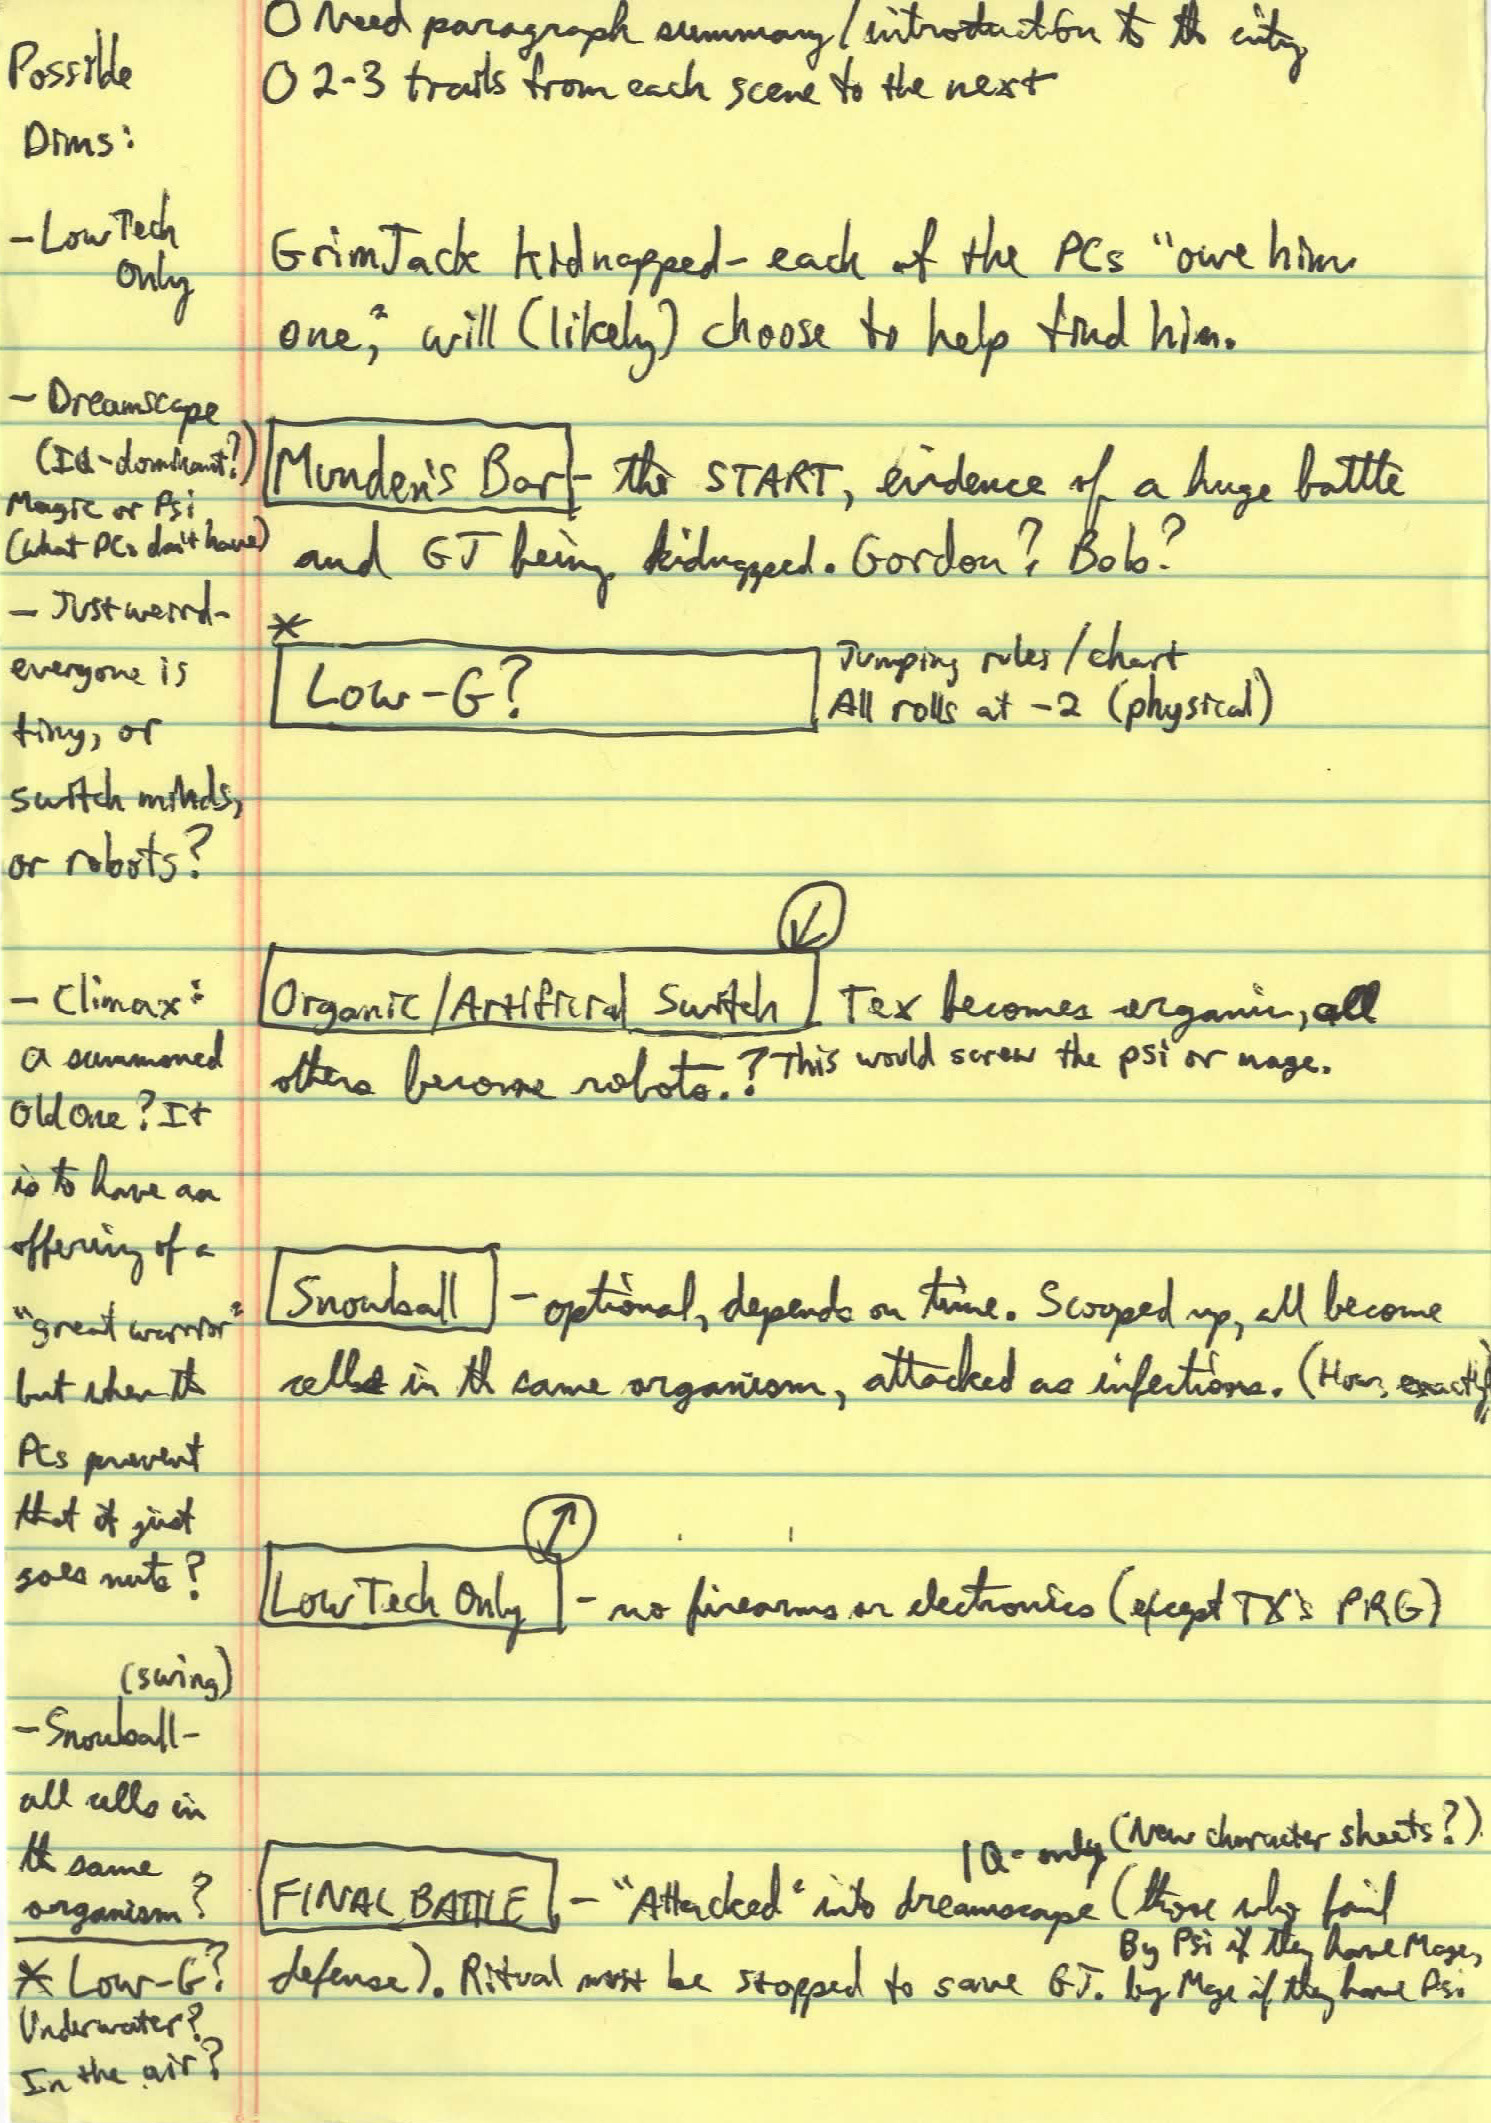 O Need paragraph summary/introduction to th city
O 2-3 trails from each scene to the next
Possible
Dims:
- Low Tech
Only
- Dreamscape
(IQ-dominant?)
Magic or Psi
(what PCs don't have)
- Just weird-
everyone is
tiny, or
switch minds,
or robots?
- Climax:
a summoned
Old One? It
is to have an
offering of a
"great warrior"
but when th
PCs prevent
that it just
goes nuts?
(swing)
- Snowball-
all cells in
th same
organism?
* Low-G?
Underwater?
In the air?
GrimJack kidnapped- each of the PCs "owe him
one," will (likely) choose to help find him.
Munden's Bar - the START, evidence of a huge battle
and GJ being kidnapped. Gordon? Bob?
*
Low-G?
Jumping rules/chart
All rolls at -2 (physical)
↙
Organic/Artificial Switch Tex becomes organic, all
others become robots.? This would screw the psi or mage.
Snowball - optional, depends on time. Scooped up, all become
cells in th same organism, attacked as infections. (How, exactly
↑
Low Tech Only - no firearms or electronics (except TX's PRG)
IQ-only (New character sheets?)
FINAL BATTLE - "Attacked" into dreamscape (those who fail
By Psi if they have Mage,
defense). Ritual must be stopped to save GJ. by Mage if they have Psi.